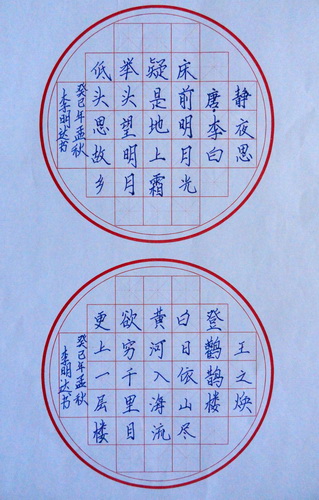 静夜思
唐·李白
床前明月光
疑是地上霜
举头望明月
低头思故乡
癸巳年孟秋
李明达书
登鹳鹊楼
王之焕
白日依山尽
黄河入海流
欲穷千里目
更上一层楼
癸巳年孟秋
李明达书